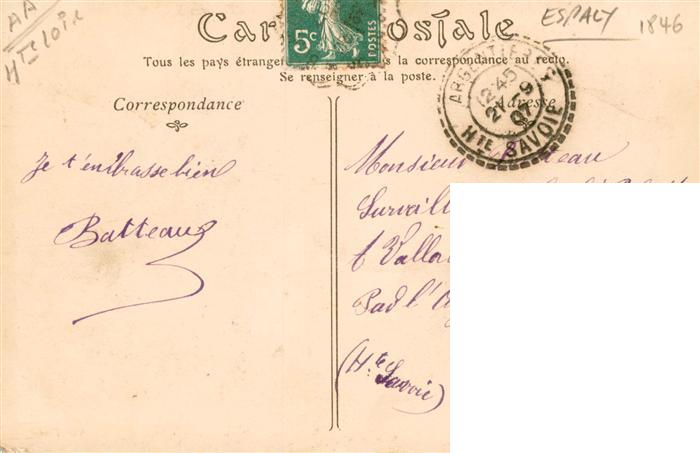 AA
Hte Loire
ESPALY 1846
Carte Postale
5c POSTES
Tous les pays étrangers la correspondance au recto.
Se renseigner à la poste.
ARGENTIÈRE
12 45
21 -9
07
Hte SAVOIE
Correspondance
Adresse
Je t'embrasse bien
Batteaux
Monsieur eau
Surveill
à Vallo
Par l'A
(Hte Savoie)